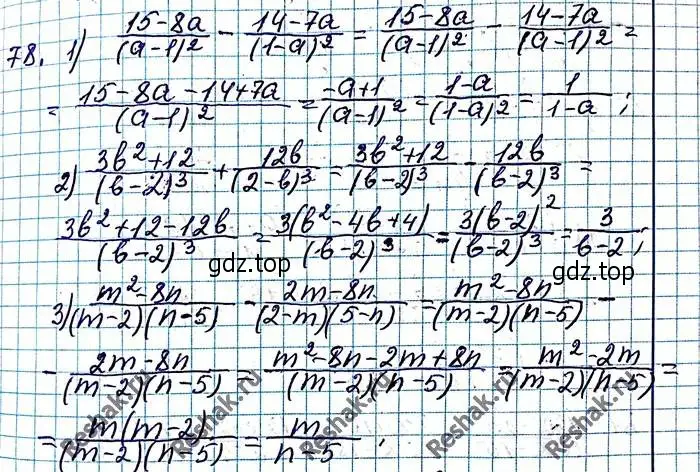 78. 1) (15-8a)/(a-1)² - (14-7a)/(1-a)² = (15-8a)/(a-1)² - (14-7a)/(a-1)² =
= (15-8a-14+7a)/(a-1)² = (-a+1)/(a-1)² = (1-a)/(1-a)² = 1/(1-a);
2) (3в²+12)/(в-2)³ + 12в/(2-в)³ = (3в²+12)/(в-2)³ - 12в/(в-2)³ =
(3в²+12-12в)/(в-2)³ = 3(в²-4в+4)/(в-2)³ = 3(в-2)²/(в-2)³ = 3/(в-2);
gdz.top gdz.top
3) (m²-8n)/(m-2)(n-5) - (2m-8n)/(2-m)(5-n) = (m²-8n)/(m-2)(n-5) -
- (2m-8n)/(m-2)(n-5) = (m²-8n-2m+8n)/(m-2)(n-5) = (m²-2m)/(m-2)(n-5) =
= m(m-2)/(m-2)(n-5) = m/(n-5);
Reshak.ru Reshak.ru Reshak.ru Reshak.ru